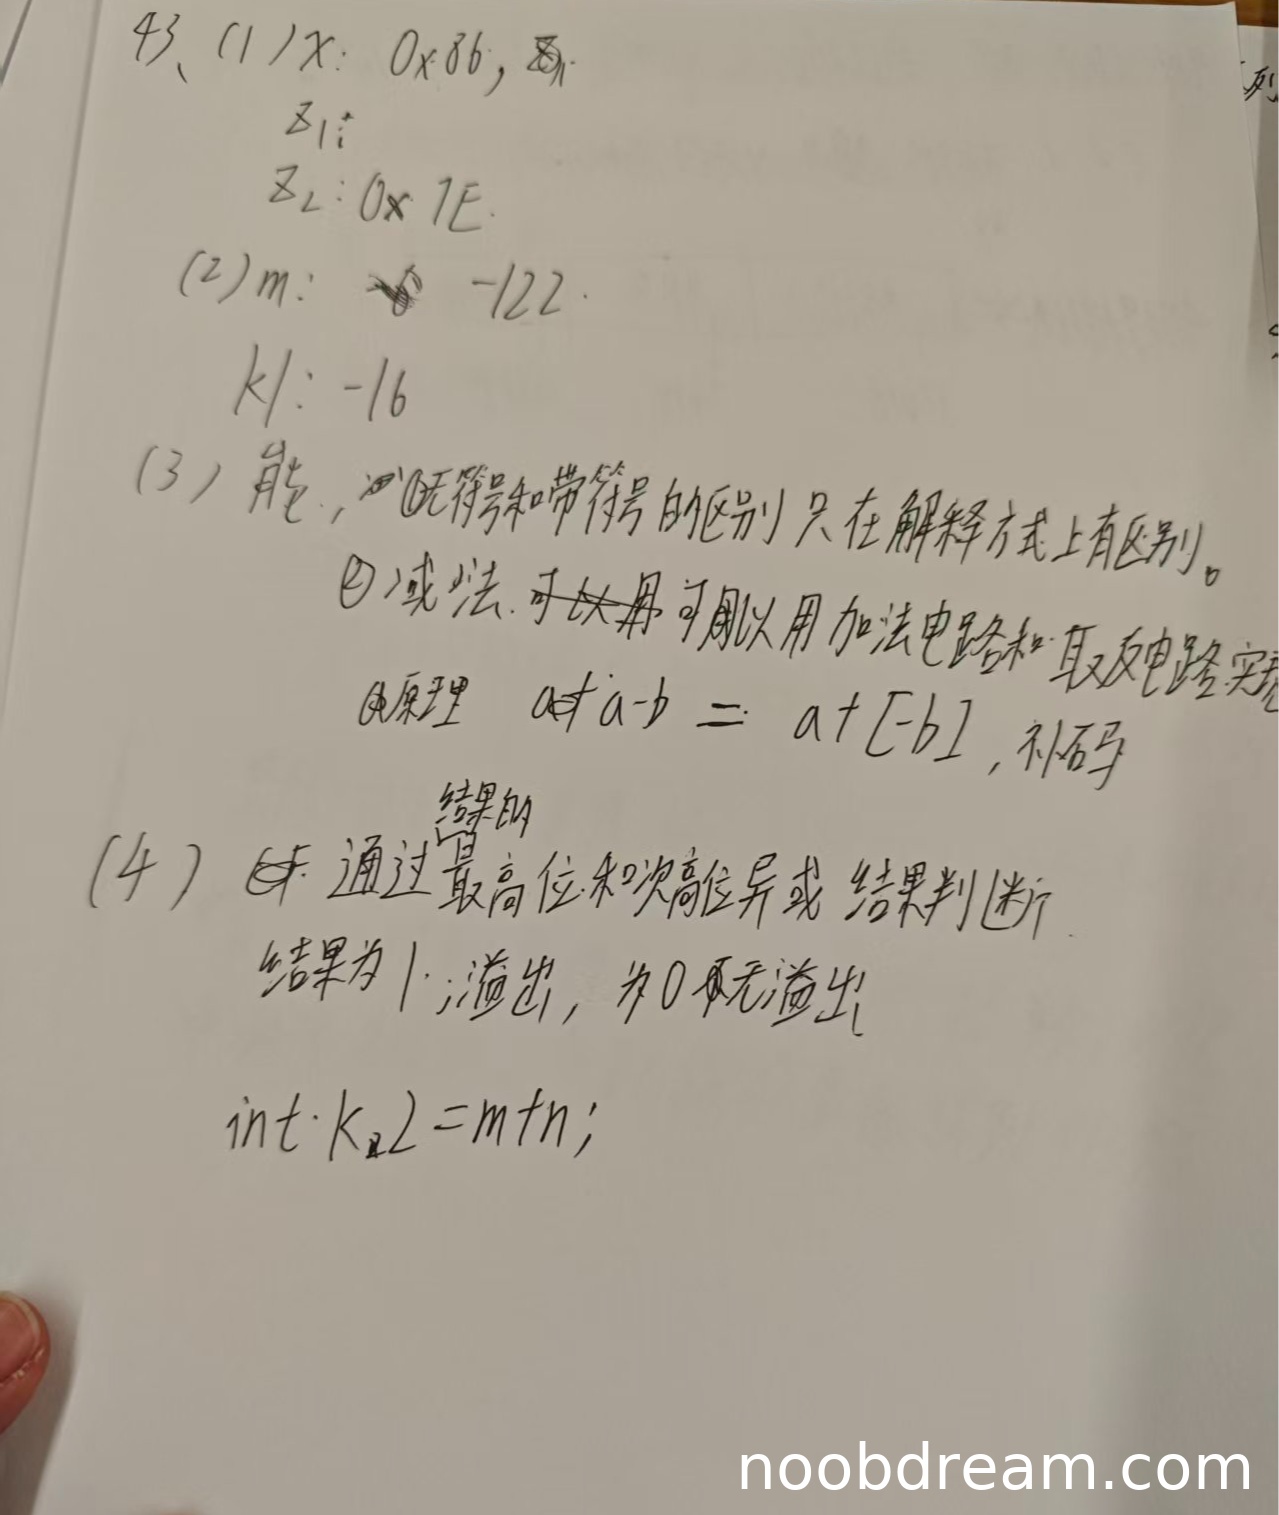 43、(1) x: 0x86,
z1:
z2: 0x7E.
(2) m: -122.
k1: -16
(3) 能, ①无符号和带符号的区别只在解释方式上有区别。
② 减法 可以用 可以用加法电路和取反电路实现
原理 a-b = a+[-b], 补码
结果的
(4) 通过最高位和次高位异或 结果判断
结果为1;溢出, 为0 无溢出
int k2=m+n;
列
noobdream.com